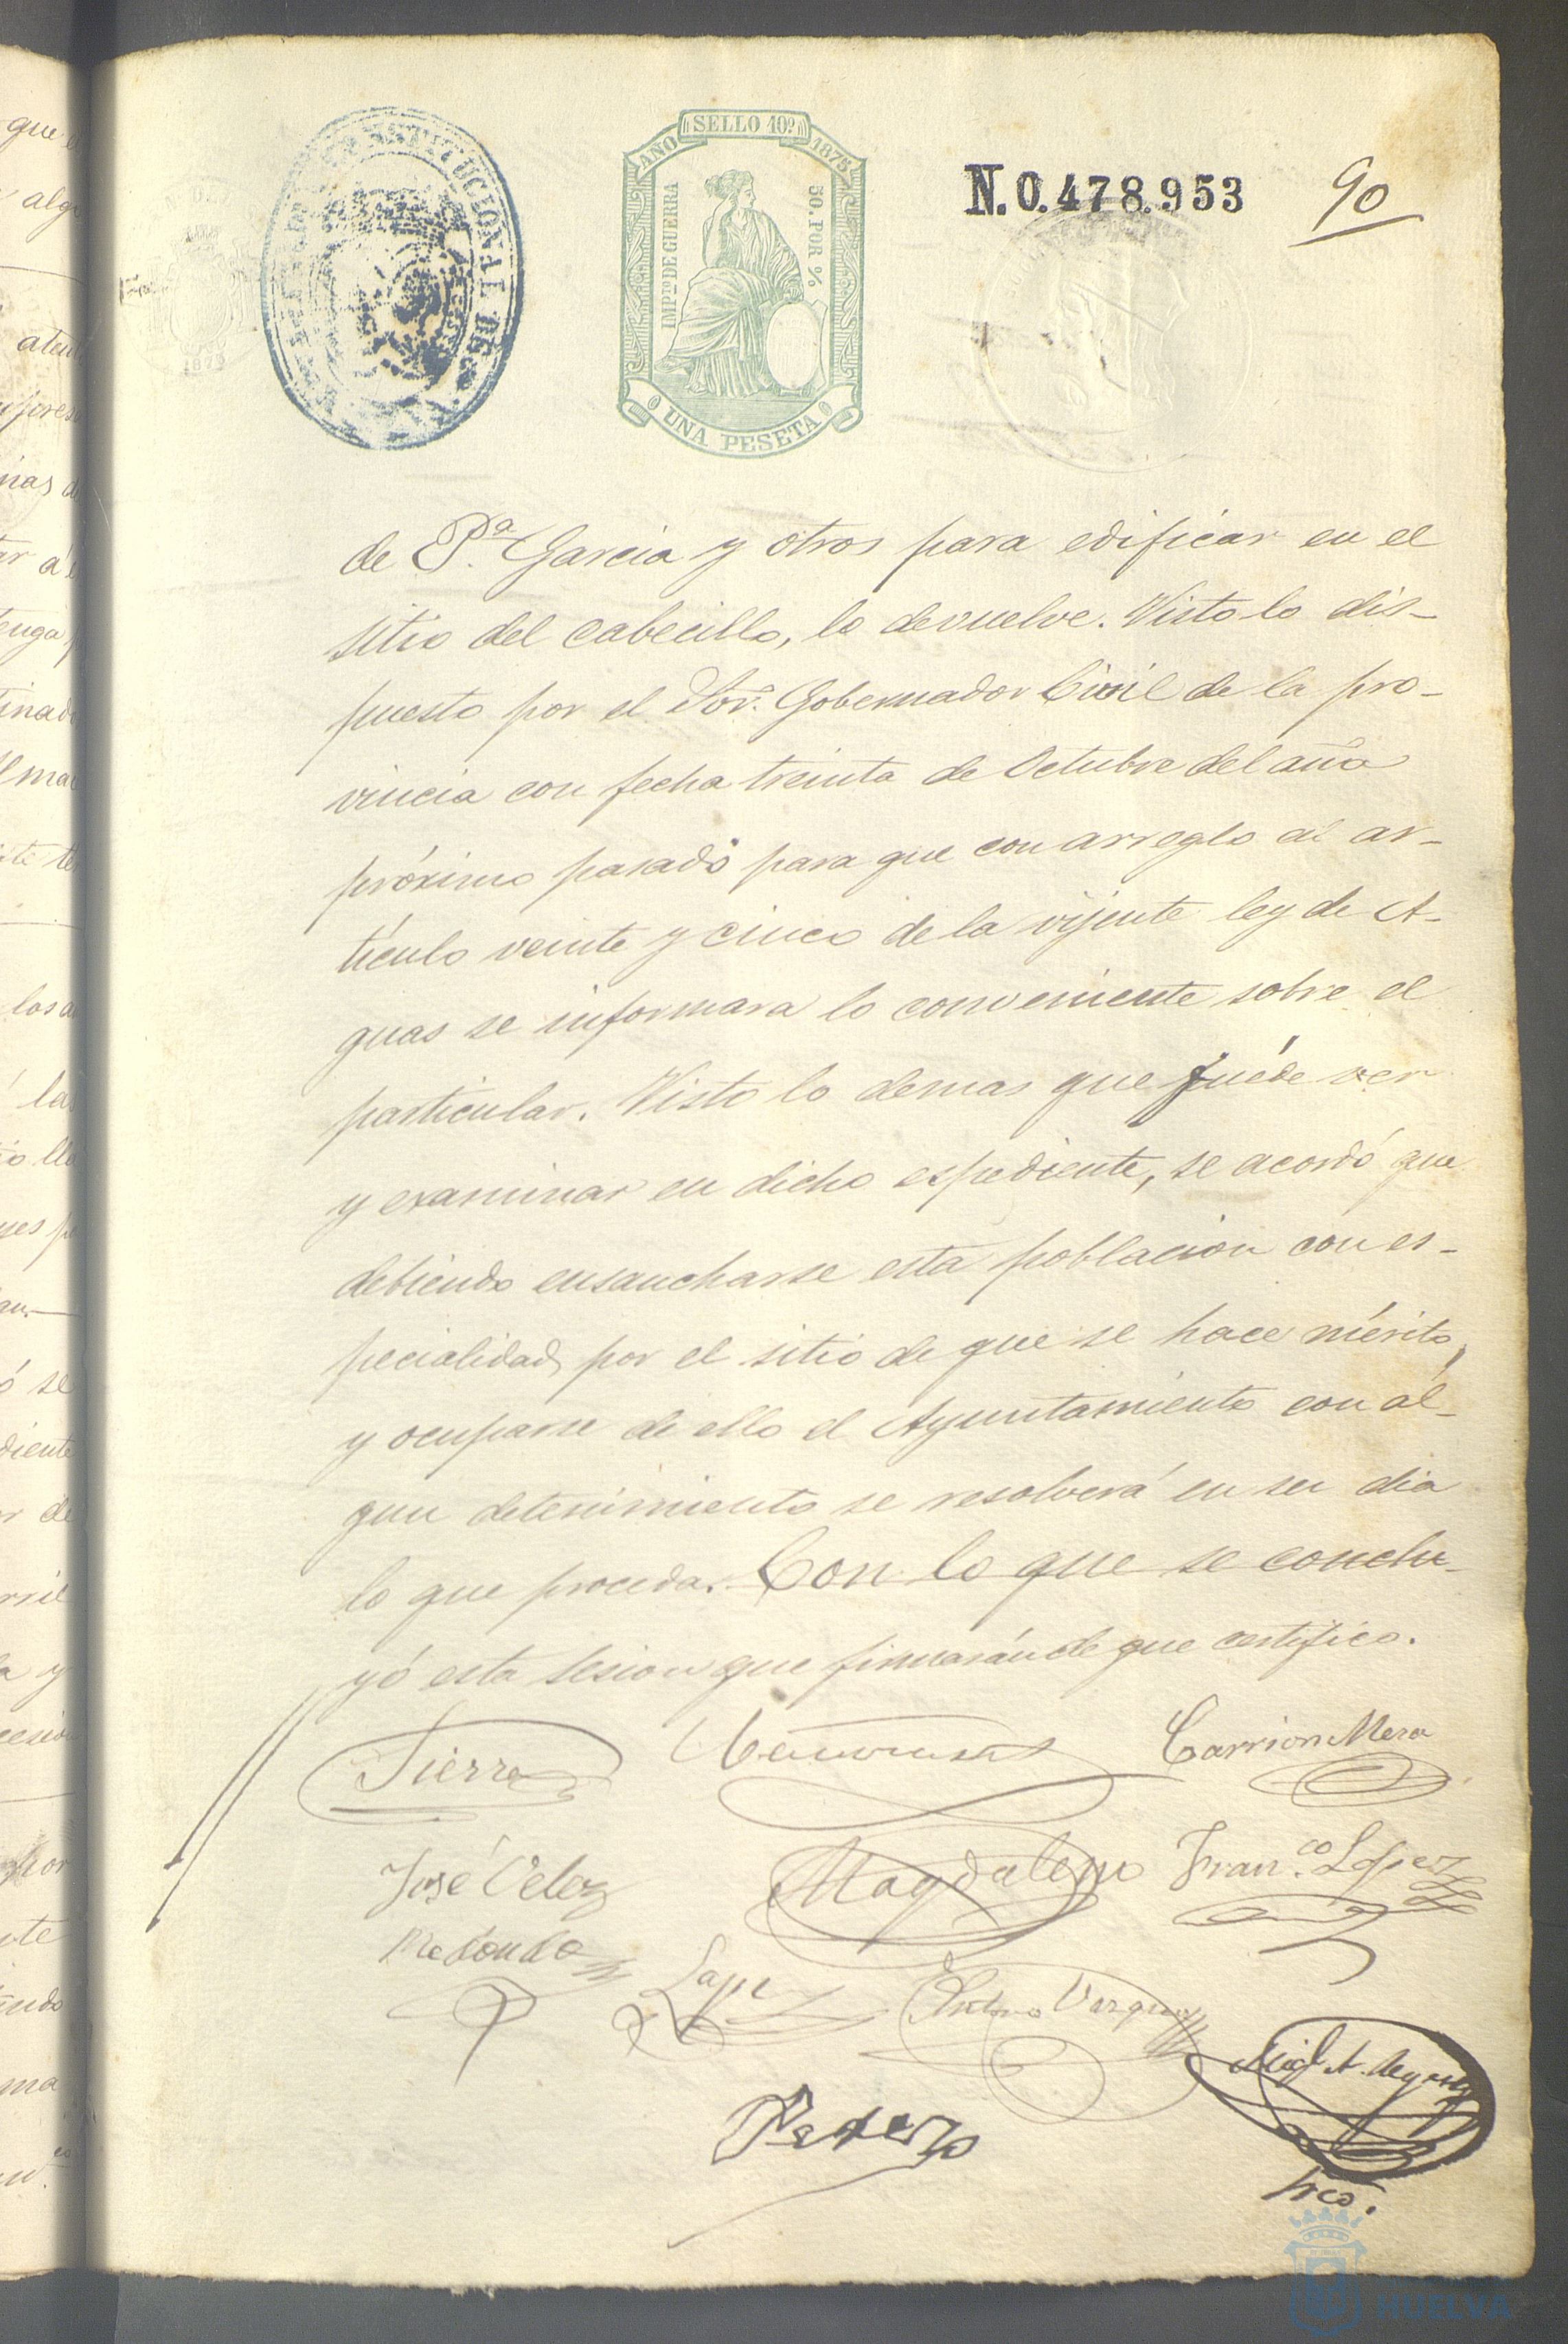 CONSTITUCIONAL DE
AÑO SELLO 10º 1875
IMPTO DE GUERRA
50 POR %
UNA PESETA
N.0.478.953
90
de P.ª Garcia y otros para edificar en el
sitio del cabecillo, lo devuelve. Visto lo dis-
puesto por el Sor. Gobernador Civil de la pro-
vincia con fecha treinta de Octubre del año
próximo pasado para que con arreglo al ar-
tículo veinte y cinco de la vijente ley de A-
guas se informara lo conveniente sobre el
particular. Visto lo demas que fué de ver
y examinar en dicho espediente, se acordó que
debiendo ensancharse esta poblacion con es-
pecialidad por el sitio de que se hace mérito,
y ocuparse de ello el Ayuntamiento con al-
gun detenimiento se resolverá en su dia
lo que proceda. Con lo que se conclu-
yó esta sesion que firmarán de que certifico.
Sierra
Carrion Mera
José Velez
Magdaleno
Fran.co Lopez
Redondo
Antonio Vazquez
Srio.
HUELVA